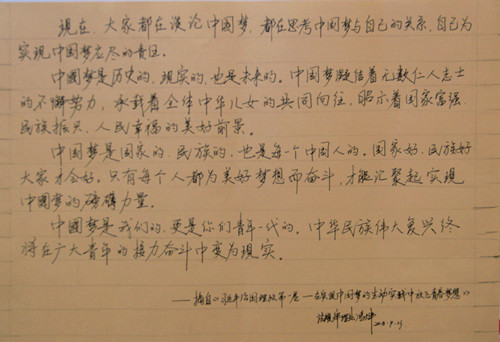 现在，大家都在谈论中国梦，都在思考中国梦与自己的关系、自己为
实现中国梦应尽的责任。
中国梦是历史的、现实的，也是未来的。中国梦凝结着无数仁人志士
的不懈努力，承载着全体中华儿女的共同向往，昭示着国家富强、
民族振兴、人民幸福的美好前景。
中国梦是国家的、民族的，也是每一个中国人的。国家好、民族好，
大家才会好。只有每个人都为美好梦想而奋斗，才能汇聚起实现
中国梦的磅礴力量。
中国梦是我们的，更是你们青年一代的。中华民族伟大复兴终
将在广大青年的接力奋斗中变为现实。
——摘自《 治国理政第一卷——在实现中国梦的生动实践中放飞青春梦想》